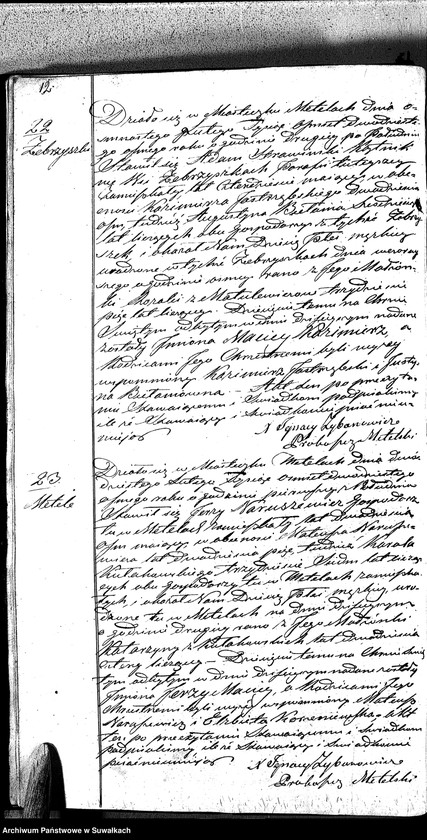 12.
22
Zebrzyszki
Działo się w Miasteczku Metelach dnia o-
śmnastego Lutego Tysiąc ośmset dwudzieste-
go ósmego roku o godzinie drugiej po Południu
Stawił się Adam
w Wsi Zebrzyszkach Parafii tutejszey
Zamieszkały lat Czterdzieści maiący w obe-
cności Kazimierza Jastrzębskiego dwadzieścia
ośm, tudzież Augustyna
lat liczących obu Gospodarzy w tychże Zebrzy-
szek, i okazał Nam Dziecię płci męzkiey
urodzone w tychże Zebrzyszkach dnia wczoray-
szego o godzinie osmey rano z Jego Małżon-
ki Rozalii z Matulewiczow trzydzieści
pięć lat liczącey. Dziecięciu temu na Chrzcie
Świętym odbytym w dniu dzisieyszym nadane
zostały Imiona Maciey Kazimierz, a
Rodzicami Jego Chrzestnemi byli wyżey
wspomniony Kazimierz Jastrzębski i Justy-
na Akt ten po przeczyta-
niu Stawaiącemu i Świadkom podpisaliśmy
iż Stawaiący i Świadkowie pisać nie u-
mieią
X Ignacy Zybanowicz
Proboszcz Metelski
23
Metele
Działo się w Miasteczku Metelach dnia dwu-
dziestego Lutego Tysiąc Ośmset dwudziestego
ósmego roku o godzinie pierwszey z Południa
Stawił się Jerzy Naruszewicz Gospodarz
tu w Metelach Zamieszkały lat Dwadzieścia
ośm maiący w obecności Mateusza
lat Dwadzieścia pięć, tudzież Karola
Kułakowskiego trzydzieści Siedm lat liczą-
cych obu Gospodarzy tu w Metelach zamieszka-
łych, i okazał Nam Dziecię płci męzkiey uro-
dzone tu w Metelach na dniu dzisieyszym
o godzinie drugiey rano z Jego Małżonki
Katarzyny z Kułakowskich lat Dwadzieścia
cztery liczącey. Dziecięciu temu na Chrzcie Świę-
tym odbytym w dniu Dzisieyszym nadane zostały
Imiona Jerzy Maciey, a Rodzicami Jego
Chrzestnemi byli wyżey wspomniony Mateusz
i Elżbieta Akt
ten po przeczytaniu Stawaiącemu i Świadkom
podpisaliśmy, iż Stawaiący i Świadkowie
pisać nie umieią
X Ignacy Zybanowicz
Proboszcz Metelski
Archiwum Państwowe w Suwałkach